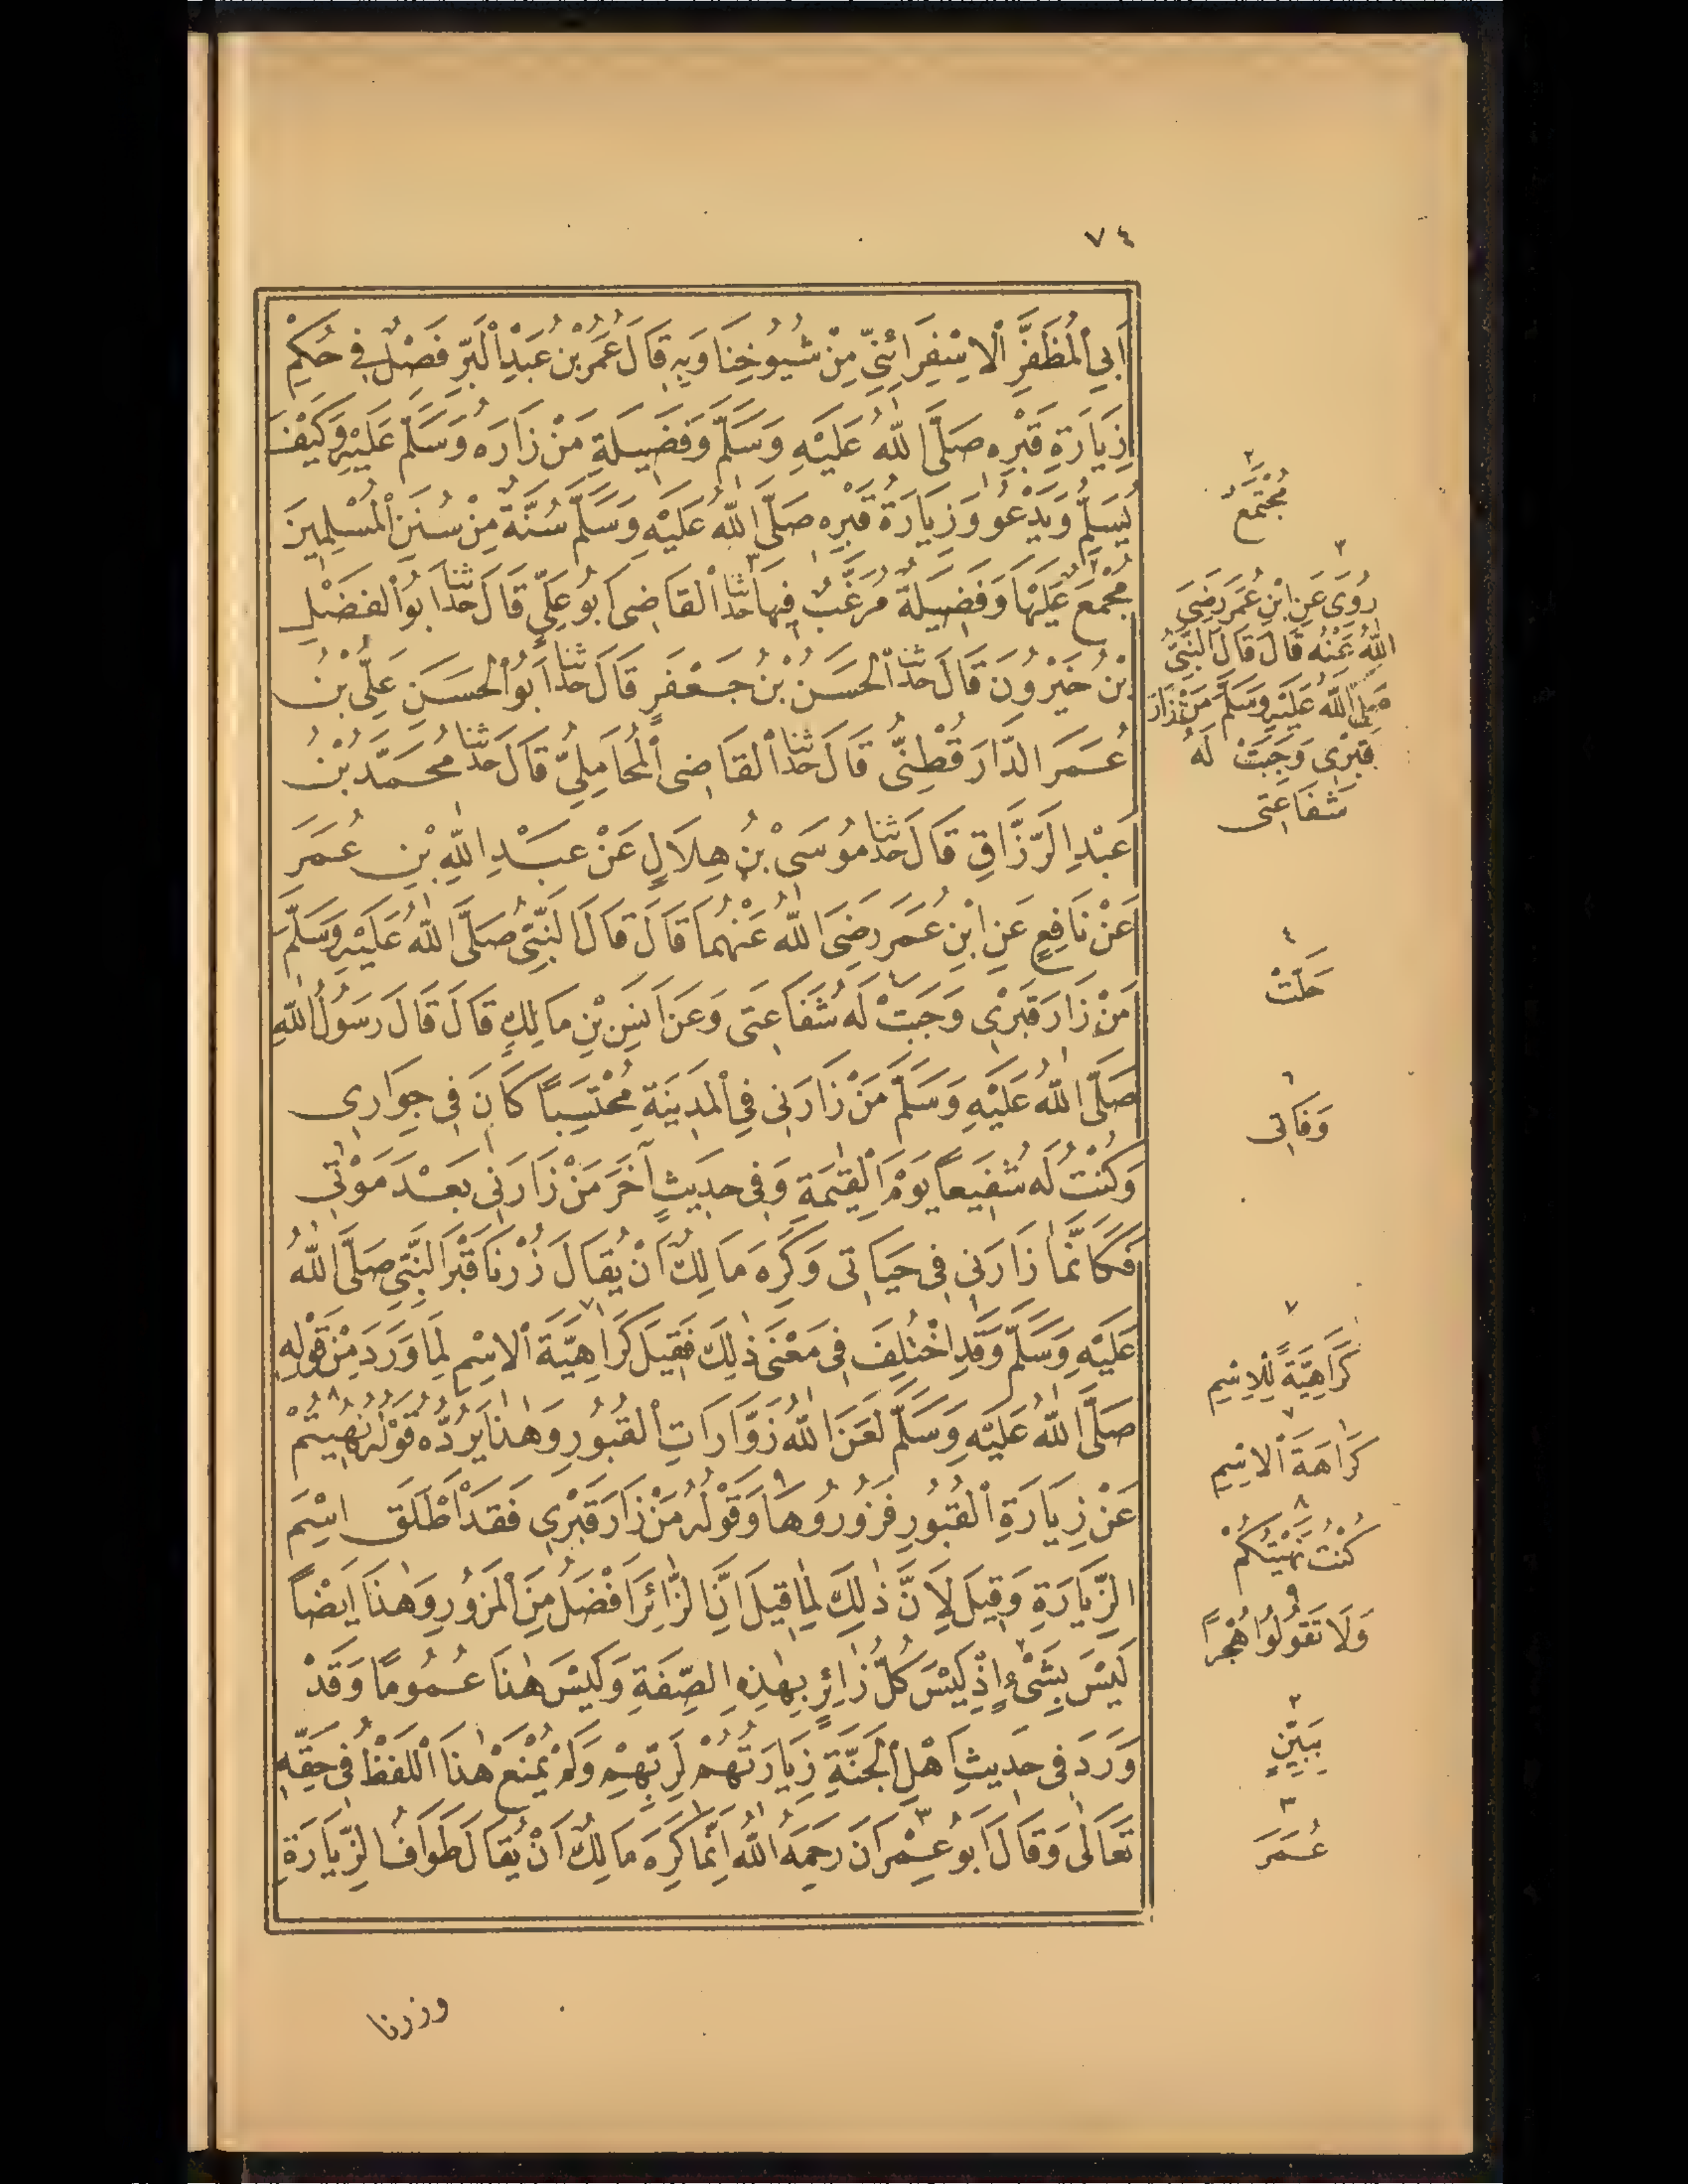 ٧٤
اَبِي الْمُظَفَّرِ الْاِسْفِرَائِنِيِّ مِنْ شُيُوخِنَا وَبِهِ قَالَ عُمَرُ بْنُ عَبْدِ الْبَرِّ فَصْلٌ فِي حُكْمِ
زِيَارَةِ قَبْرِهِ صَلَّى اللّٰهُ عَلَيْهِ وَسَلَّمَ وَفَضِيلَةِ مَنْ زَارَهُ وَسَلَّمَ عَلَيْهِ وَكَيْفَ
يُسَلِّمُ وَيَدْعُو وَزِيَارَةُ قَبْرِهِ صَلَّى اللّٰهُ عَلَيْهِ وَسَلَّمَ سُنَّةٌ مِنْ سُنَنِ الْمُسْلِمِينَ
مُجْمَعٌ عَلَيْهَا وَفَضِيلَةٌ مُرَغَّبٌ فِيهَا حَدَّثَنَا الْقَاضِى اَبُو عَلِىٍّ قَالَ حَدَّثَنَا اَبُو الْفَضْلِ
بْنُ خَيْرُونَ قَالَ حَدَّثَنَا الْحَسَنُ بْنُ جَعْفَرٍ قَالَ حَدَّثَنَا اَبُو الْحَسَنِ عَلِىُّ بْنُ
عُمَرَ الدَّارَقُطْنِىُّ قَالَ حَدَّثَنَا الْقَاضِى الْمَحَامِلِيُّ قَالَ حَدَّثَنَا مُحَمَّدُ بْنُ
عَبْدِ الرَّزَّاقِ قَالَ حَدَّثَنَا مُوسَى بْنُ هِلَالٍ عَنْ عَبْدِ اللّٰهِ بْنِ عُمَرَ
عَنْ نَافِعٍ عَنِ ابْنِ عُمَرَ رَضِىَ اللّٰهُ عَنْهُمَا قَالَ قَالَ النَّبِىُّ صَلَّى اللّٰهُ عَلَيْهِ وَسَلَّمَ
مَنْ زَارَ قَبْرِى وَجَبَتْ٤ لَهُ شَفَاعَتِى وَعَنْ اَنَسِ بْنِ مَالِكٍ قَالَ قَالَ رَسُولُ اللّٰهِ
صَلَّى اللّٰهُ عَلَيْهِ وَسَلَّمَ مَنْ زَارَنِى فِي الْمَدِينَةِ مُحْتَسِبًا كَانَ فِى جِوَارِى
وَكُنْتُ لَهُ شَفِيعًا يَوْمَ الْقِيٰمَةِ وَفِى حَدِيثٍ آخَرَ مَنْ زَارَنِى بَعْدَ مَوْتِى
فَكَاَنَّمَا زَارَنِى فِى حَيَاتِى وَكَرِهَ مَالِكٌ اَنْ يُقَالَ زُرْنَا قَبْرَ النَّبِىِّ صَلَّى اللّٰهُ
عَلَيْهِ وَسَلَّمَ وَقَدِ اخْتُلِفَ فِى مَعْنَى ذٰلِكَ فَقِيلَ كَرَاهِيَّةَ٧ الْاِسْمِ لِمَا وَرَدَ مِنْ قَوْلِهِ
صَلَّى اللّٰهُ عَلَيْهِ وَسَلَّمَ لَعَنَ اللّٰهُ زَوَّارَاتِ الْقُبُورِ وَهٰذَا يَرُدُّهُ قَوْلُهُ نُهِيتُمْ٨
عَنْ زِيَارَةِ الْقُبُورِ فَزُورُوهَا٩ وَقَوْلُهُ مَنْ زَارَ قَبْرِى فَقَدْ اَطْلَقَ اسْمَ
الزِّيَارَةِ وَقِيلَ لِاَنَّ ذٰلِكَ لِمَا قِيلَ اِنَّ الزَّائِرَ اَفْضَلُ مِنَ الْمَزُورِ وَهٰذَا اَيْضًا
لَيْسَ بِشَىْءٍ٢ اِذْ لَيْسَ كُلُّ زَائِرٍ بِهٰذِهِ الصِّفَةِ وَلَيْسَ هٰذَا عُمُومًا وَقَدْ
وَرَدَ فِى حَدِيثِ اَهْلِ الْجَنَّةِ زِيَارَتُهُمْ لِرَبِّهِمْ وَلَمْ يُمْنَعْ هٰذَا اللَّفْظُ فِى حَقِّهِ
تَعَالٰى وَقَالَ اَبُو عِمْرَانَ٣ رَحِمَهُ اللّٰهُ اِنَّمَا كَرِهَ مَالِكٌ اَنْ يُقَالَ طَوَافُ الزِّيَارَةِ
وزرنا
٢
مُجْتَمَعٌ
٣
رُوِىَ عَنِ ابْنِ عُمَرَ رَضِىَ
اللّٰهُ عَنْهُ قَالَ قَالَ النَّبِىُّ
صَلَّى اللّٰهُ عَلَيْهِ وَسَلَّمَ مَنْ زَارَ
قَبْرِى وَجَبَتْ لَهُ
شَفَاعَتِى
٤
حَلَّتْ
٦
وَفَاتِى
٧
كَرَاهِيَّةً لِلْاِسْمِ
٧
كَرَاهَةَ الْاِسْمِ
٨
كُنْتُ نَهَيْتُكُمْ
٩
وَلَا تَقُولُوا هُجْرًا
٢
بِبَيِّنٍ
٣
عُمَرَ